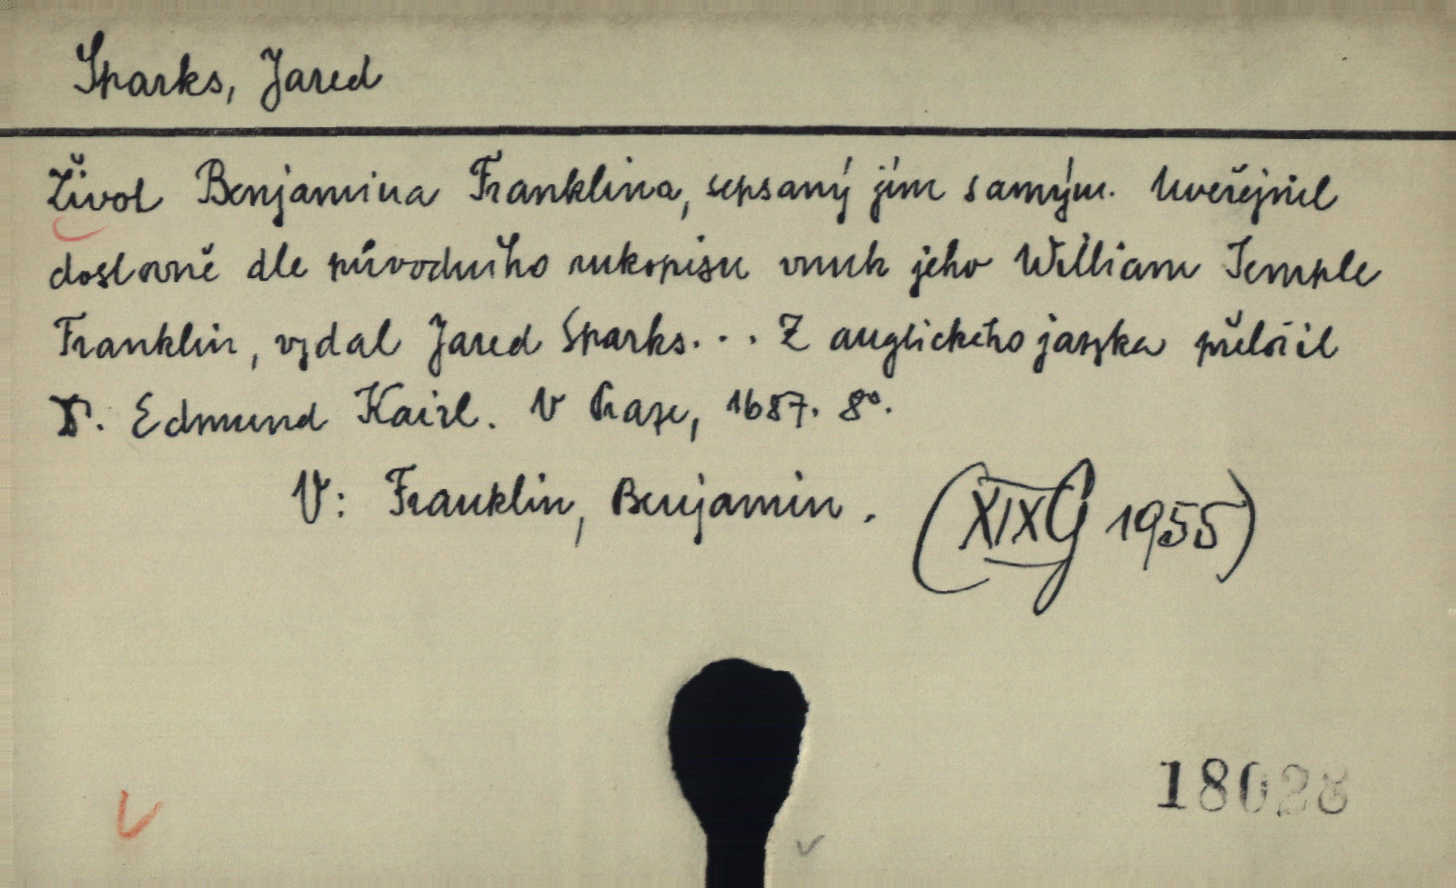 Sparks, Jared
Život Benjamina Franklina, sepsaný jím samým. Uveřejnil
doslovně dle původního rukopisu vnuk jeho William Temple
Franklin, vydal Jared Sparks... Z anglického jazyka přeložil
Dr. Edmund Kaizl. V Praze, 1687. 8°.
V: Franklin, Benjamin. (XIX G 1955)
18028